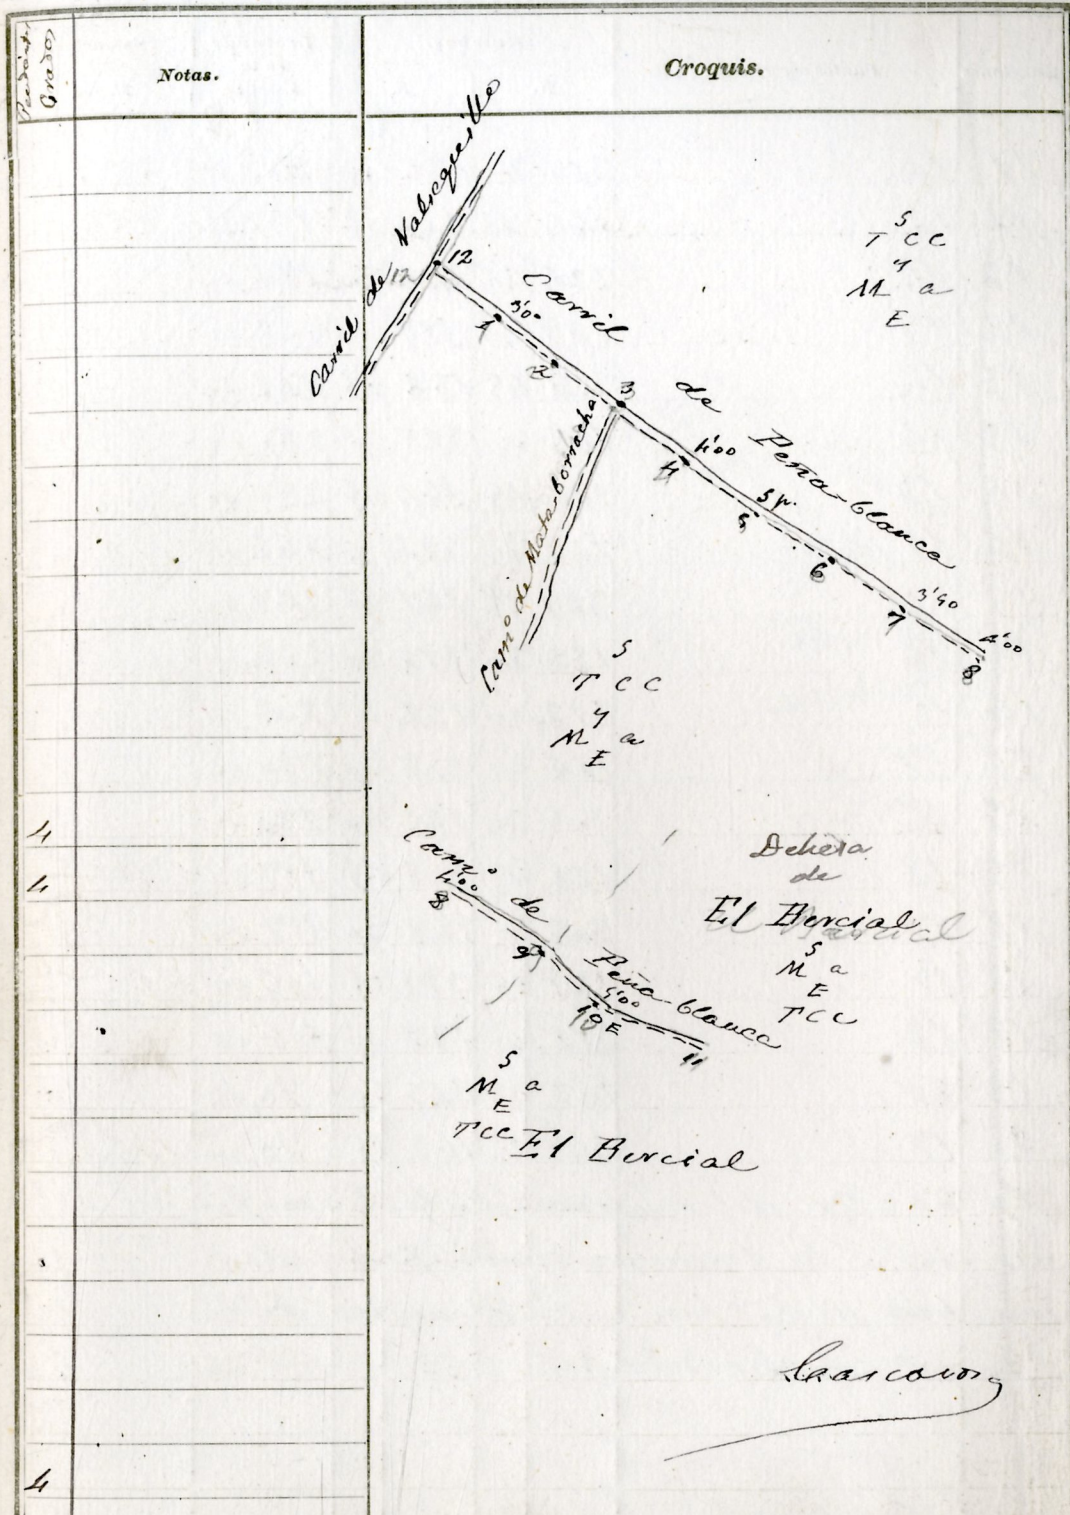 Grados
Notas.
Croquis.
Carril de Valsequillo
12
12
Carril de Peña blanca
1
3'00
2
3
4
4'00
5
6
7
3'50
8
4'00
Camº de Mata-borracha
S
T C C
y
M a
E
S
T C C
y
M a
E
4
4
4
Camº de Peña blanca
4'00
8
9
10
5'00
E
11
Dehesa
de
El Bercial
S
M a
E
T C C
S
M a
E
T C C
El Bercial